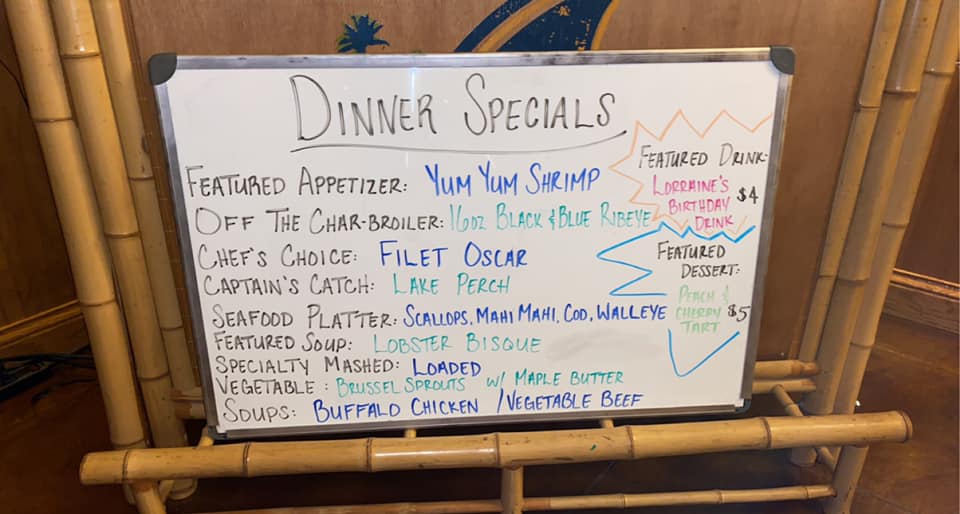 DINNER SPECIALS
FEATURED APPETIZER: YUM YUM SHRIMP
OFF THE CHAR-BROILER: 16OZ BLACK & BLUE RIBEYE
CHEF'S CHOICE: FILET OSCAR
CAPTAIN'S CATCH: LAKE PERCH
SEAFOOD PLATTER: SCALLOPS, MAHI MAHI, COD, WALLEYE
FEATURED SOUP: LOBSTER BISQUE
SPECIALTY MASHED: LOADED
VEGETABLE: BRUSSEL SPROUTS W/ MAPLE BUTTER
SOUPS: BUFFALO CHICKEN / VEGETABLE BEEF
FEATURED DRINK:
LORRAINE'S
BIRTHDAY $4
DRINK
FEATURED
DESSERT:
PEACH &
CHERRY $5
TART